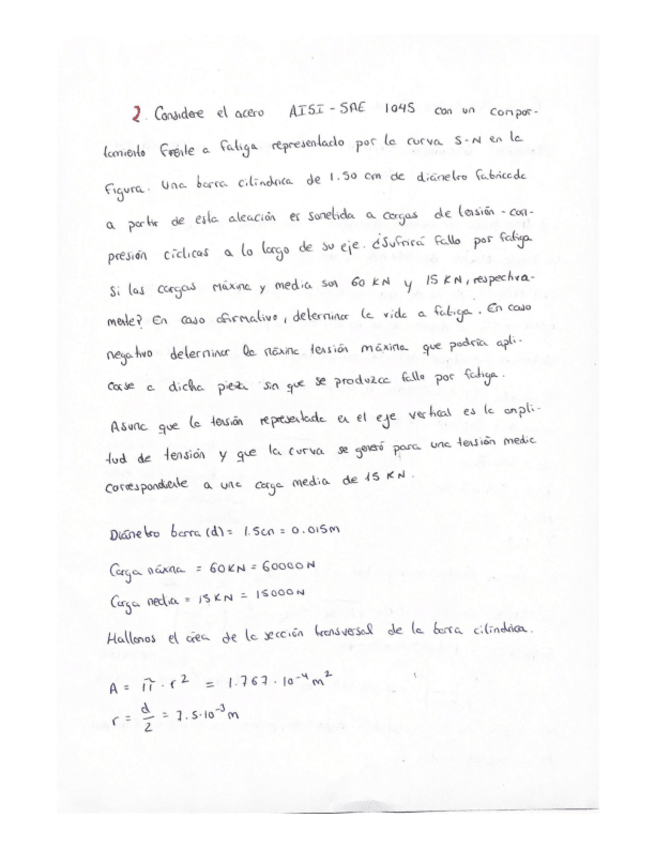 2. Considere el acero AISI-SAE 1045 con un compor-
tamiento frente a fatiga representado por la curva S-N en la
figura. Una barra cilíndrica de 1.50 cm de diámetro fabricada
a partir de esta aleación es sometida a cargas de tensión-com-
presión cíclicas a lo largo de su eje. ¿Sufrirá fallo por fatiga
si las cargas máxima y media son 60 KN y 15 KN, respectiva-
mente? En caso afirmativo, determinar la vida a fatiga. En caso
negativo determinar la máxima tensión máxima que podría apli-
carse a dicha pieza sin que se produzca fallo por fatiga.
Asuma que la tensión representada en el eje vertical es la ampli-
tud de tensión y que la curva se generó para una tensión media
correspondiente a una carga media de 15 KN.
Diámetro barra (d) = 1.5cm = 0.015m
Carga máxima = 60KN = 60000N
Carga media = 15KN = 15000N
Hallamos el área de la sección transversal de la barra cilíndrica.
A = π · r² = 1.767 · 10⁻⁴ m²
r = d/2 = 7.5·10⁻³ m